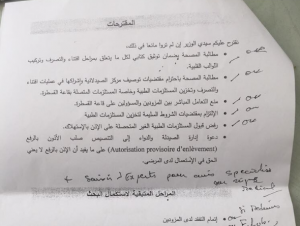 المقترحات
نقترح عليكم سيدي الوزير إن لم تروا مانعا في ذلك:
- مطالبة المصحة بضمان توثيق كتابي لكل ما يتعلق بمراحل اقتناء والتصرف وتركيب
اللوالب القلبية.
- مطالبة المصحة باحترام مقتضيات توصيف مركز الصيدلانية وإشراكها في عمليات اقتناء
والتصرف وتخزين المستلزمات الطبية وخاصة المستلزمات المتصلة بقاعة القسطرة.
- منع التعامل المباشر بين المزودين والمسؤولين على قاعة القسطرة.
- الإلتزام بمقتضيات الشروط السليمة لتخزين المستلزمات الطبية
- رفض قبول المستلزمات الطبية الغير المتحصلة على الإذن بالإستهلاك.
- دعوة إدارة الصيدلة والدواء إلى التنصيص صلب الأذون بالرفع
(Autorisation provisoire d'enlèvement) على ما يفيد أن الإذن بالرفع لا يعني
الحق في الإستعمال لدى المرضى.
Experts pour avis
المراحل المتبقية لاستكمال البحث
- إتمام التفقد لدى المزودين